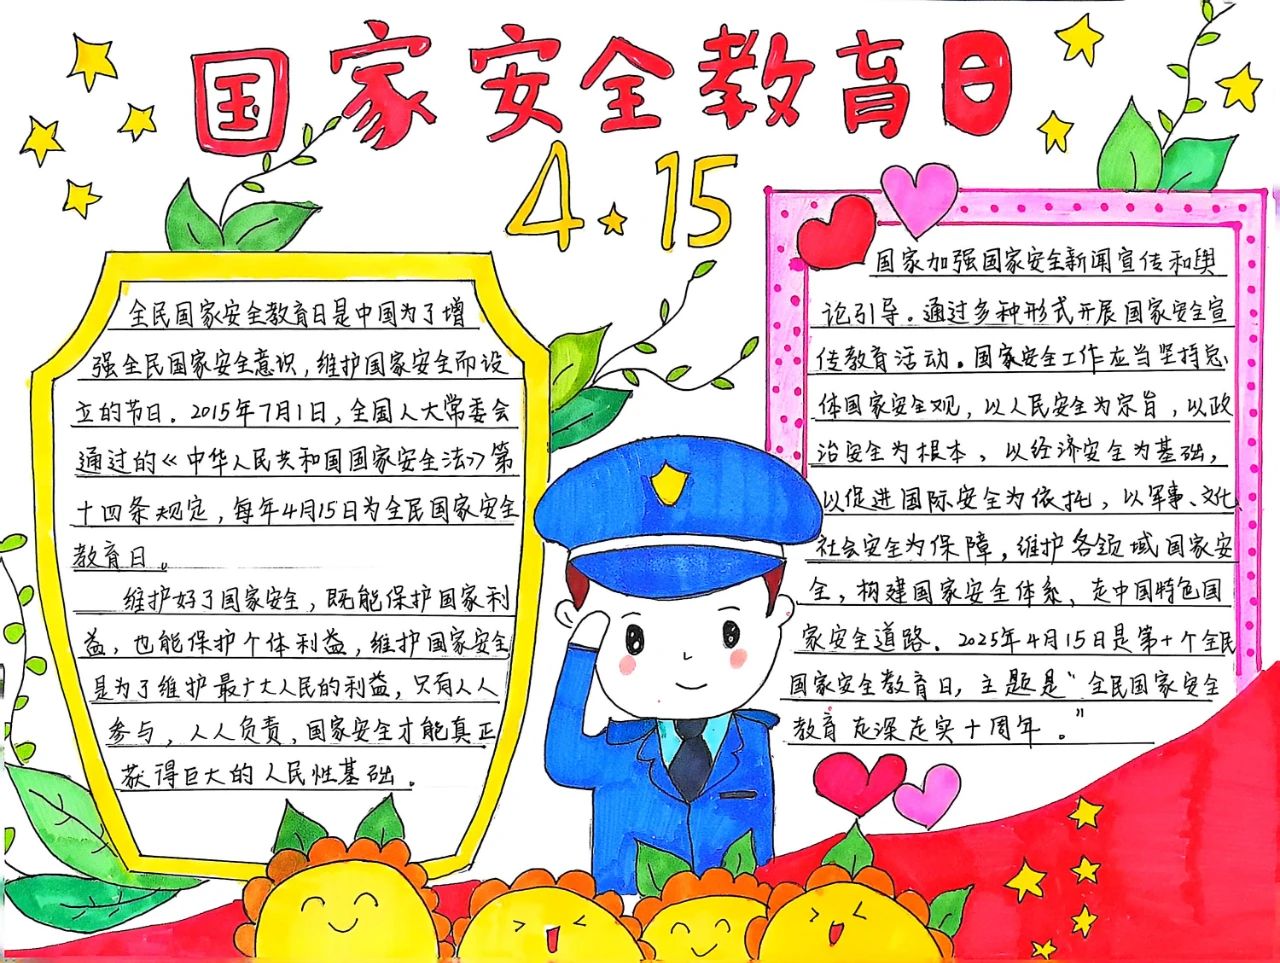 国家安全教育日
4·15
全民国家安全教育日是中国为了增
强全民国家安全意识，维护国家安全而设
立的节日。2015年7月1日，全国人大常委会
通过的《中华人民共和国国家安全法》第
十四条规定，每年4月15日为全民国家安全
教育日。
维护好了国家安全，既能保护国家利
益，也能保护个体利益，维护国家安全
是为了维护最广大人民的利益，只有人人
参与，人人负责，国家安全才能真正
获得巨大的人民性基础。
国家加强国家安全新闻宣传和舆
论引导。通过多种形式开展国家安全宣
传教育活动。国家安全工作应当坚持总
体国家安全观，以人民安全为宗旨，以政
治安全为根本、以经济安全为基础，
以促进国际安全为依托，以军事、文化、
社会安全为保障，维护各领域国家安
全，构建国家安全体系，走中国特色国
家安全道路。2025年4月15日是第十个全民
国家安全教育日，主题是“全民国家安全
教育走深走实十周年。”